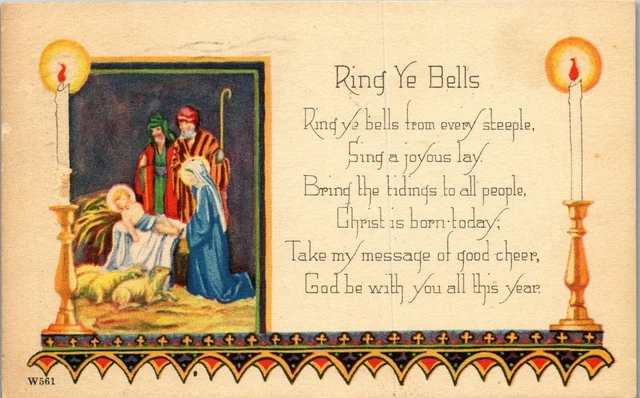 Ring Ye Bells
Ring ye bells from every steeple,
Sing a joyous lay.
Bring the tidings to all people,
Christ is born to-day;
Take my message of good cheer,
God be with you all this year.
W561